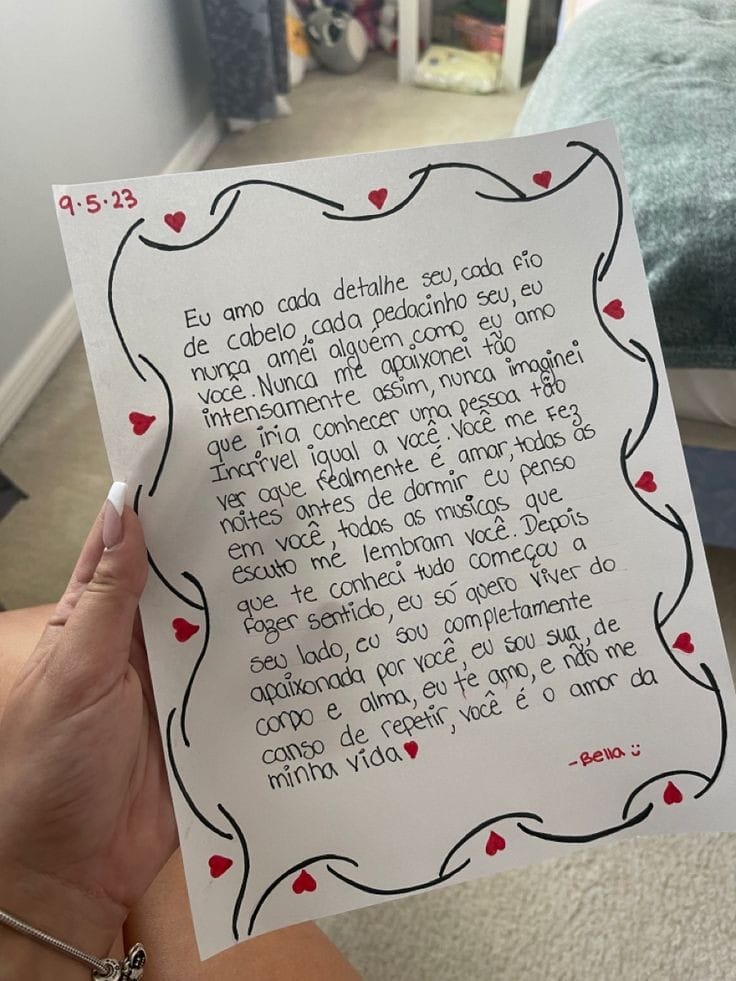 9.5.23
Eu amo cada detalhe seu, cada fio
de cabelo, cada pedacinho seu, eu
nunca amei alguém como eu amo
você. Nunca me apaixonei tão
intensamente assim, nunca imaginei
que iria conhecer uma pessoa tão
Incrível igual a você. Você me fez
ver oque realmente é amar, todas as
noites antes de dormir eu penso
em você, todas as musicas que
escuto me lembram você. Depois
que te conheci tudo começou a
fazer sentido, eu só quero viver do
seu lado, eu sou completamente
apaixonada por você, eu sou sua, de
corpo e alma, eu te amo, e não me
canso de repetir, você é o amor da
minha vida ♥
-Bella :)